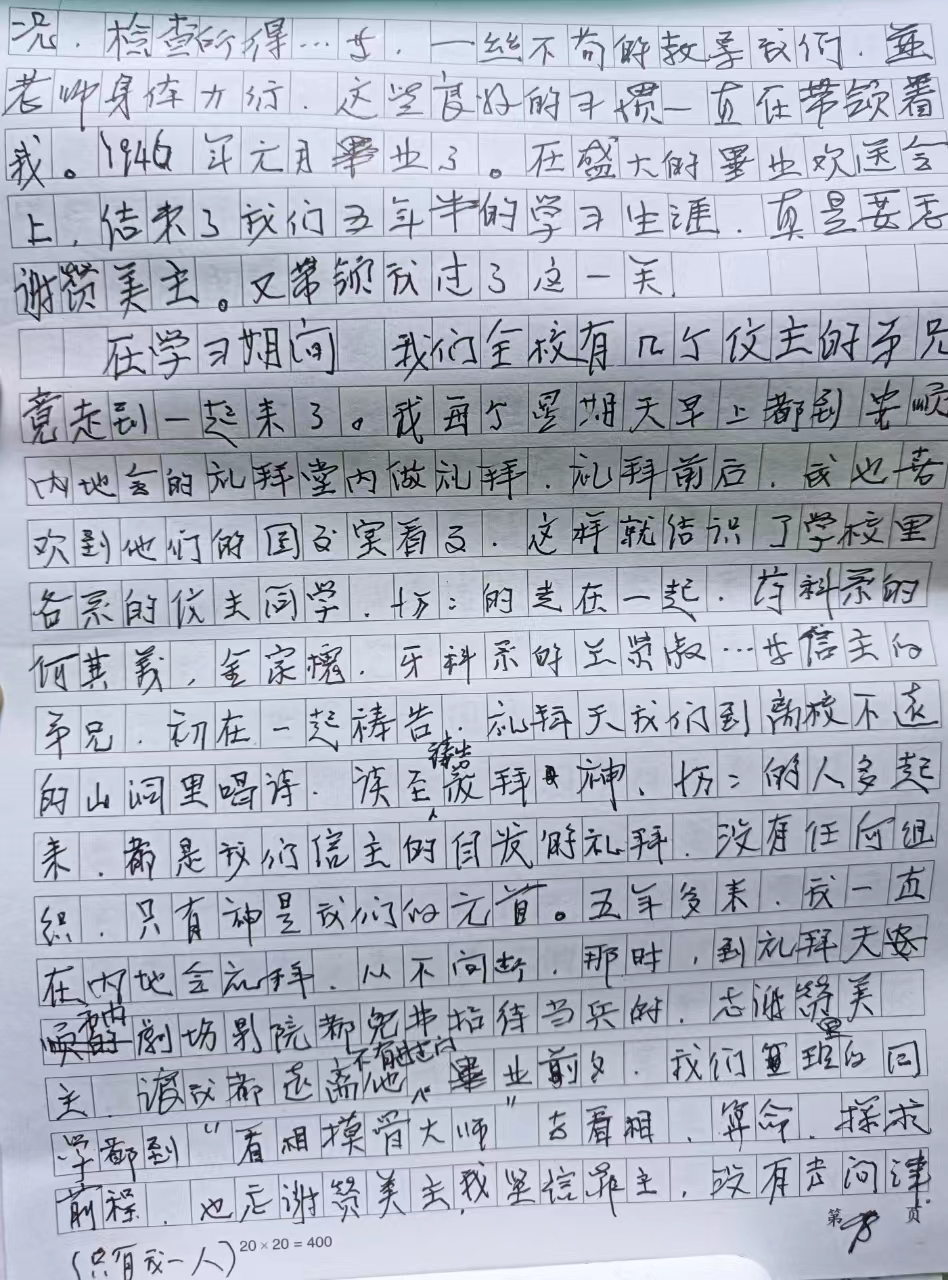 况．检查所得…等．一丝不苟的教导我们．並
老师身体力行．这些良好的习惯一直在带领着
我。1946年元月畢业了。在盛大的畢业欢送会
上，结束了我们五年半的学习生涯．真是要志
谢赞美主。又带领我过了这一关．
在学习期间 我们全校有几个仪主的弟兄
竟走到一起来了。我每个星期天早上都到安顺
内地会的礼拜堂内做礼拜．礼拜前后，我也喜
欢到他们的图书室看书．这样就结识了学校里
各系的信主同学．切：的走在一起．药科系的
何其義，金家槐．牙科系的兰荣淑…等信主的
弟兄．初在一起祷告．礼拜天我们到离校不远
的山洞里唱诗．读圣祷告敬拜神、切：的人多起
来．都是我们信主的自发的礼拜．没有任何组
织．只有神是我们的元首。五年多来．我一直
在内地会礼拜．从不间断．那时，到礼拜天安
顺的城内劇场影院都免费招待当兵的．志谢赞美
主．让我都远离他不有时间畢业前夕．我们班里的同
学都到“看相摸骨大师”去看相．算命．探求
前程．也志谢赞美主，我坚信靠主．没有去问津．
(只有我一人) 20×20=400
第 页